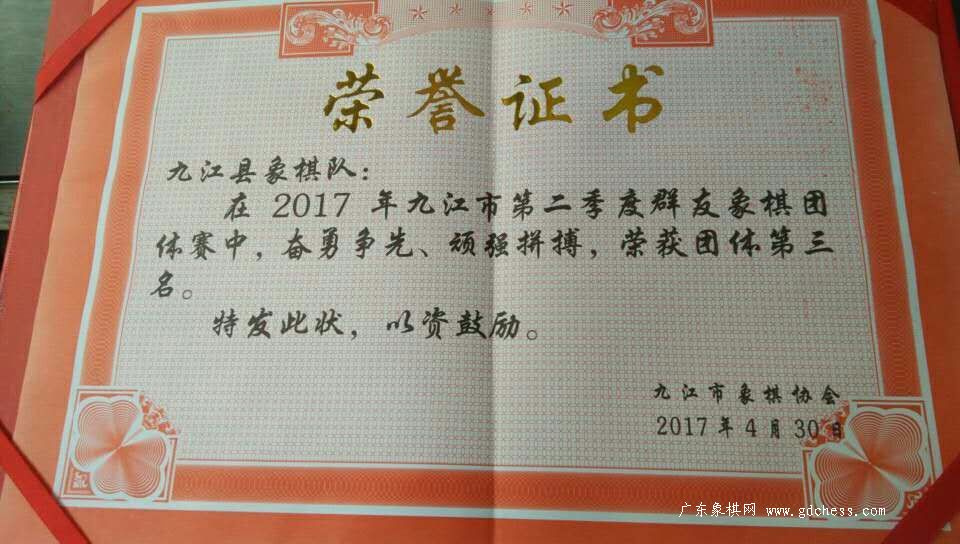 荣誉证书
九江县象棋队：
在 2017 年九江市第二季度群友象棋团
体赛中，奋勇争先、顽强拼搏，荣获团体第三
名。
特发此状，以资鼓励。
九江市象棋协会
2017 年 4 月 30 日
广东象棋网 www.gdchess.com